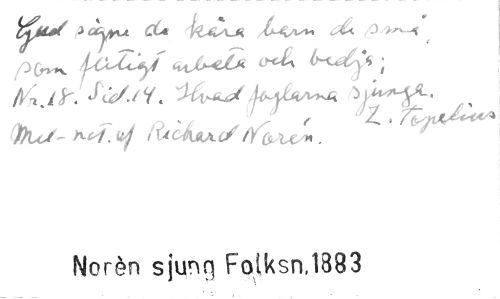 Gud signe de kära barn de små,
som flitigt arbeta och bedja;
Nr. 18. Sid. 14. Hvad foglarna sjunga.
Z. Topelius
Mel-not. af Richard Norén.
Norèn sjung Folksn, 1883